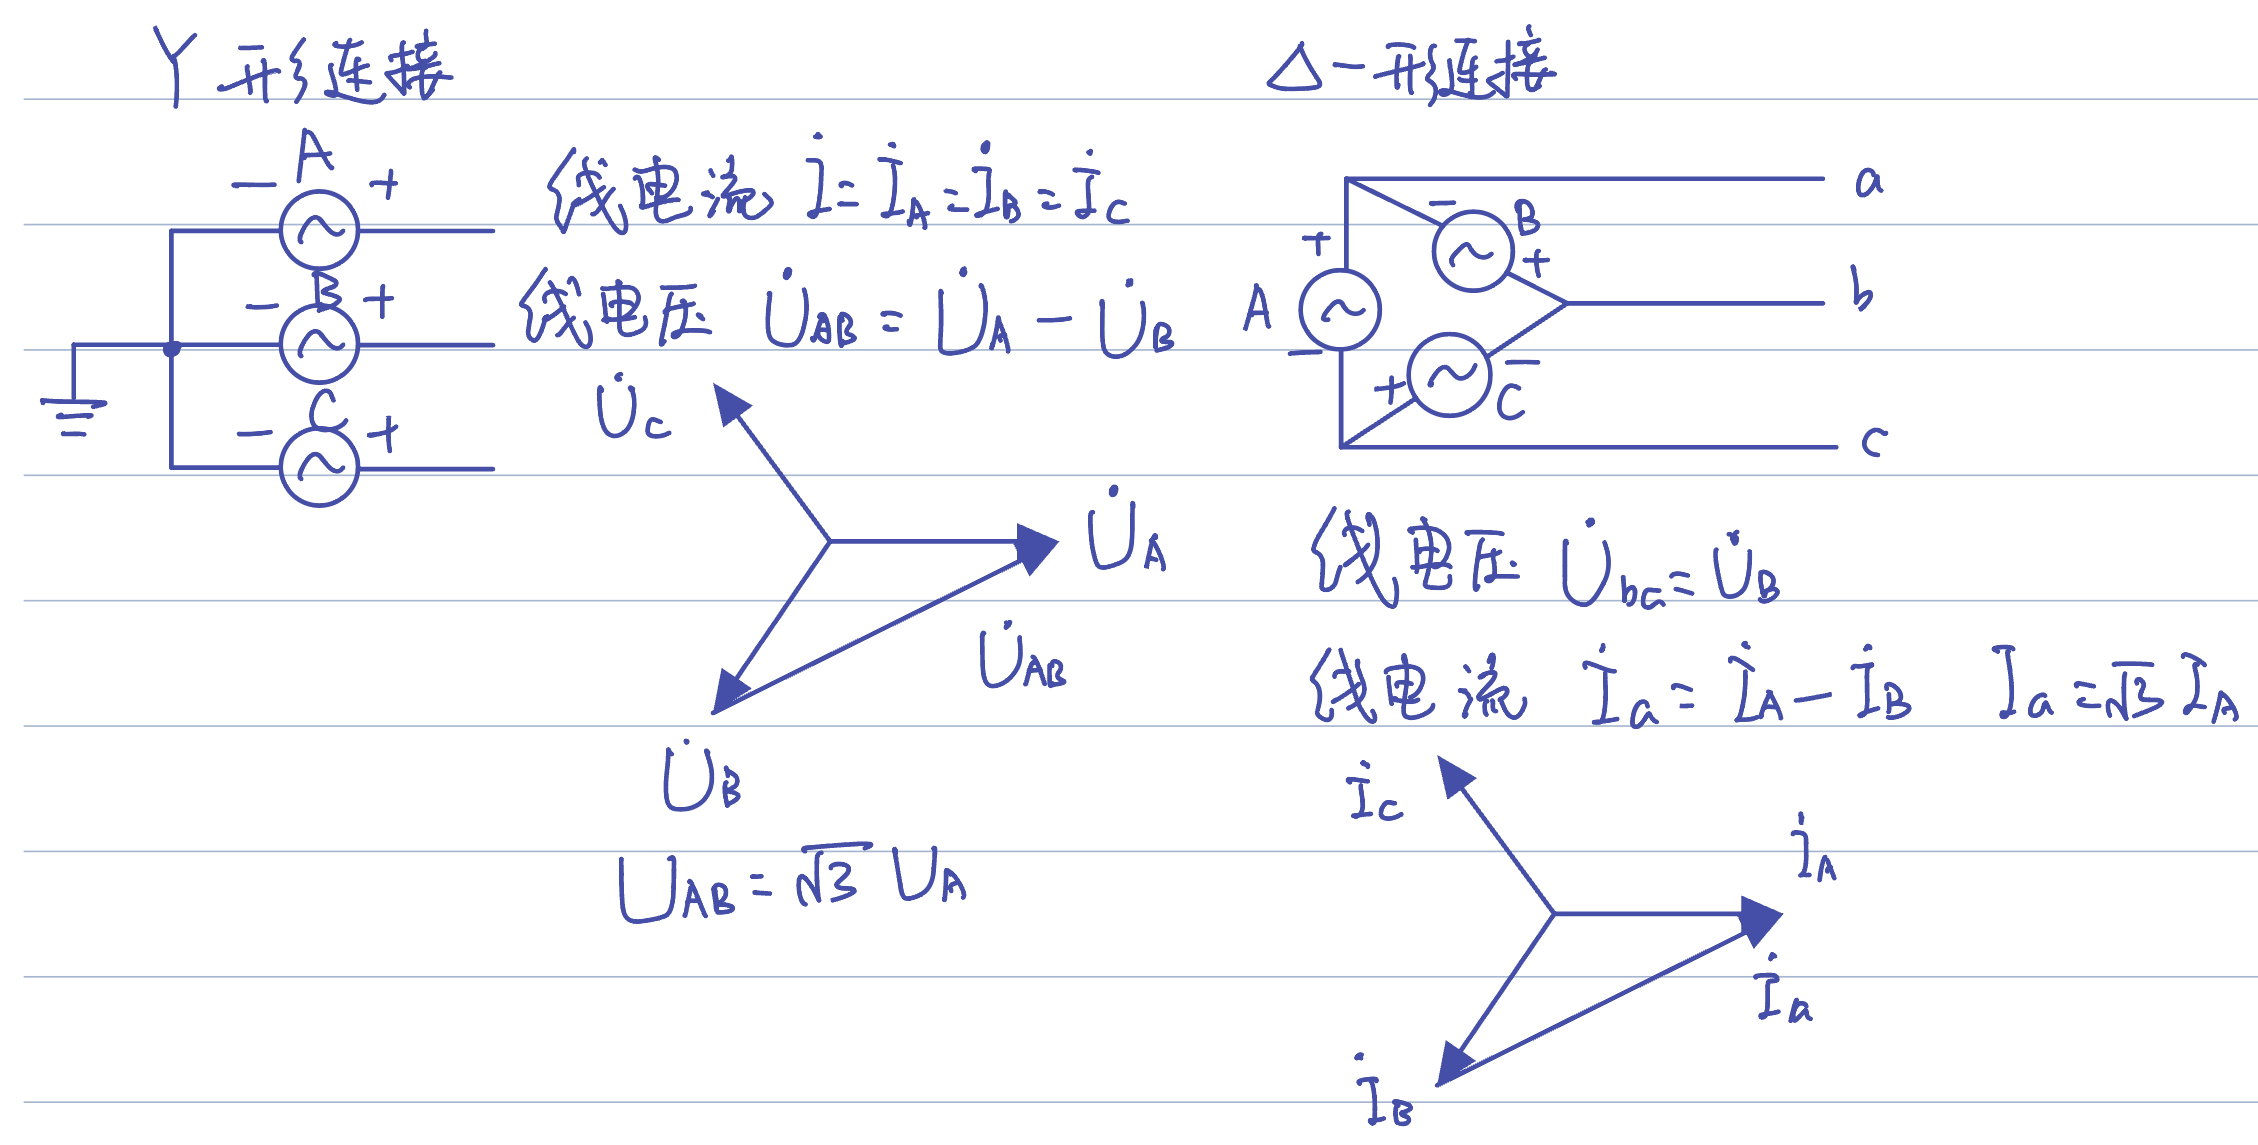 Y 形连接
A
- +
线电流 İ = İ_A = İ_B = İ_C
B
- +
线电压 U̇_AB = U̇_A - U̇_B
C
- +
U̇_C
U̇_A
U̇_AB
U̇_B
U_AB = √3 U_A
△-形连接
a
- B
+ +
A
b
- + - C
c
线电压 U̇_ba = U̇_B
线电流 İ_a = İ_A - İ_B I_a = √3 I_A
İ_C
İ_A
İ_a
İ_B